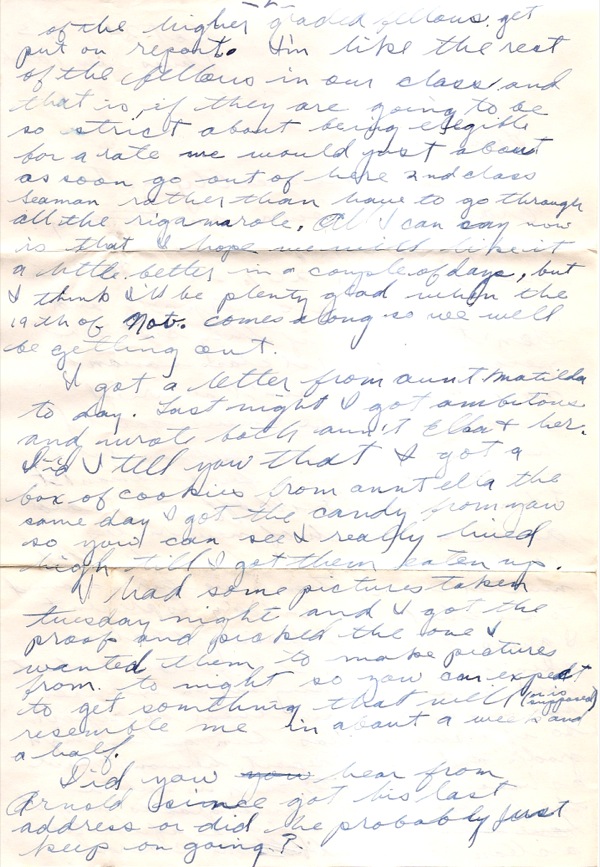 of the higher graded fellows get
put on report. I'm like the rest
of the fellows in our class and
that is, if they are going to be
so strict about being elegible
for a rate we would just about
as soon go out of here 2nd class
seaman rather than have to go through
all the rigamarole. All I can say now
is that I hope we will like it
a little better in a couple of days, but
I think I'll be plenty glad when the
19th of Nov. comes along so we will
be getting out.
I got a letter from aunt Matilda
to day. Last night I got ambitous
and wrote both aunt Ella & her.
Did I tell you that I got a
box of cookies from aunt ella the
same day I got the candy from you
so you can see I really lived
high till I got them eaten up.
I had some pictures taken
tuesday night and I got the
proof and picked the one I
wanted them to make pictures
from to night so you can expect
to get something that will (or is supposed)
resemble me in about a week and
a half.
Did you you hear from
Arnold since got his last
address or did he probably just
keep on going?